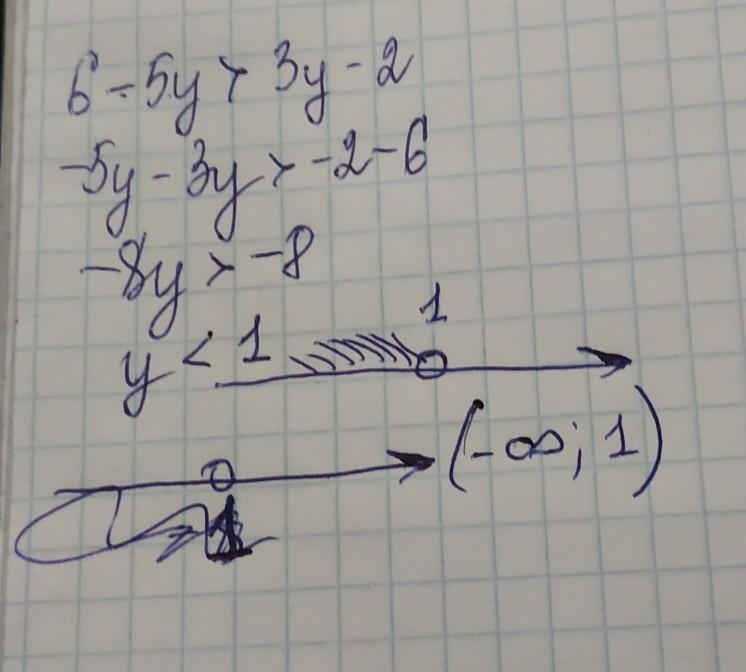 6 - 5y > 3y - 2
-5y - 3y > -2 - 6
-8y > -8
y < 1
1
(-∞; 1)
1